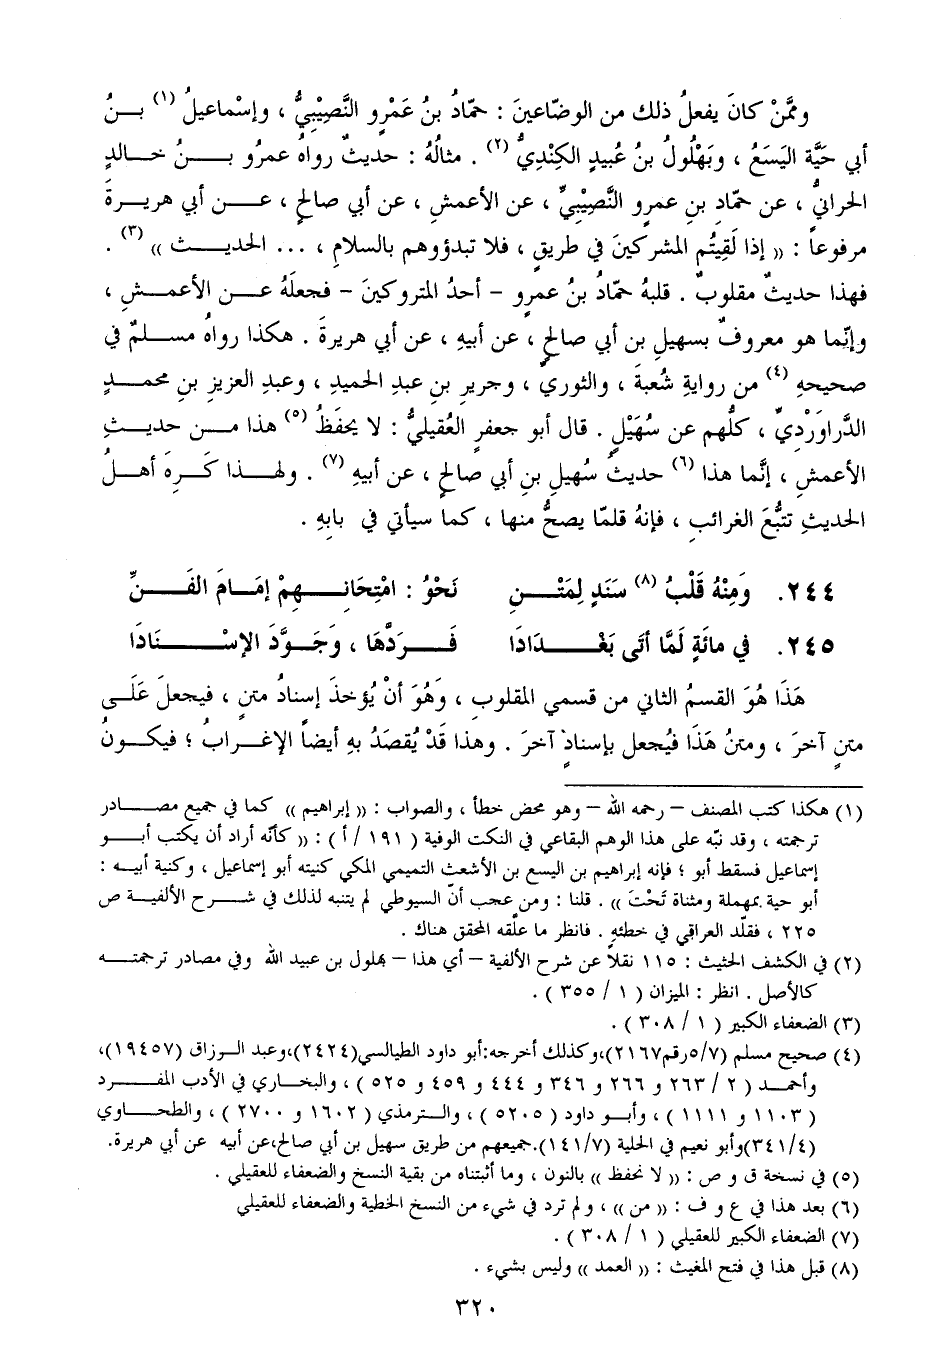 وممَّنْ كانَ يفعلُ ذلك من الوضّاعينَ : حمّادُ بنُ عَمْرٍو النَّصِيْبيُّ ، وإسْماعيلُ (١) بـنُ
أبي حَيَّة اليَسَعُ ، وبَهْلُولُ بنُ عُبيدٍ الكِنْدِيُّ (٢) . مثالُهُ : حديثٌ رواهُ عمرُو بــنُ خـالدٍ
الحرانيُّ ، عن حمّادِ بنِ عمرٍو النَّصِيْبيِّ ، عن الأعمشِ ، عن أبي صالحٍ ، عـن أبي هريـرةَ
مرفوعاً : (( إذا لَقِيتُم المشركينَ في طريقٍ ، فلا تبدؤوهم بالسلامِ ، ... الحديـث )) (٣) .
فهذا حديثٌ مقلوبٌ . قلبهُ حمّادُ بنُ عمرٍو – أحدُ المتروكينَ – فجعلَهُ عـن الأعمـشِ ،
وإنّما هو معروفٌ بسهيلِ بنِ أبي صالحٍ ، عن أبيهِ ، عن أبي هريرةَ . هكذا رواهُ مسـلمٌ في
صحيحهِ (٤) من روايةِ شُعبةَ ، والثوري ، وجريرِ بنِ عبدِ الحميدِ ، وعبدِ العزيزِ بنِ محمـدٍ
الدَّراوَرْدِيِّ ، كلُّهم عن سُهَيْلٍ . قال أبو جعفرٍ العُقيليُّ : لا يحفَظُ (٥) هذا مـن حديـثِ
الأعمشِ ، إنَّما هذا (٦) حديثُ سُهيلِ بنِ أبي صالحٍ ، عن أبيهِ (٧) . ولهـذا كَـرِهَ أهـلُ
الحديثِ تتبُّعَ الغرائبِ ، فإنهُ قلمّا يصحُّ منها ، كما سيأتي في بابِهِ .
٢٤٤. وَمِنْهُ قَلْبُ (٨) سَنَدٍ لِمَتْـنِ نَحْوُ : امْتِحَانِـهِمْ إمَـامَ الفَـنِّ
٢٤٥. في مائَةٍ لَمَّا أتَى بَغْـدَادَا فَـرَدَّهَا ، وَجَـوَّدَ الإسْـنَادَا
هَذَا هُوَ القسمُ الثاني من قسمي المقلوبِ ، وَهُوَ أنْ يُؤخذَ إسنادُ متنٍ ، فيجعلَ عَلَـى
متنٍ آخرَ ، ومتنُ هَذَا فيُجعل بإسنادٍ آخرَ . وهذا قدْ يُقصَدُ بهِ أيضاً الإغـرابُ ؛ فيكـونُ
(١) هكذا كتب المصنف – رحمه الله – وهو محض خطأ ، والصواب : (( إبراهيم )) كما في جميع مصـادر
ترجمته ، وقد نبّه على هذا الوهم البقاعي في النكت الوفية ( ١٩١ / أ ) : (( كأنّه أراد أن يكتب أبـو
إسماعيل فسقط أبو ؛ فإنه إبراهيم بن اليسع بن الأشعث التميمي المكي كنيته أبو إسماعيل ، وكنية أبيـه :
أبو حية بمهملة ومثناة تَحْتَ )) . قلنا : ومن عجب أنّ السيوطي لم يتنبه لذلك في شـرح الألفيـة ص
٢٢٥ ، فقلّد العراقي في خطئهِ . فانظر ما علّقه المحقق هناك .
(٢) في الكشف الحثيث : ١١٥ نقلاً عن شرح الألفية – أي هذا – بهلول بن عبيد الله وفي مصادر ترجمتـه
كالأصل . انظر : الميزان ( ١ / ٣٥٥ ) .
(٣) الضعفاء الكبير ( ١ / ٣٠٨ ) .
(٤) صحيح مسلم (٥/٧رقم٢١٦٧)،وكذلك أخرجه:أبو داود الطيالسي(٢٤٢٤)،وعبد الـرزاق (١٩٤٥٧)،
وأحمـد ( ٢ / ٢٦٣ و ٢٦٦ و ٣٤٦ و ٤٤٤ و ٤٥٩ و ٥٢٥ ) ، والبخـاري في الأدب المفـرد
( ١١٠٣ و ١١١١ ) ، وأبـو داود ( ٥٢٠٥ ) ، والـترمذي ( ١٦٠٢ و ٢٧٠٠ ) ، والطحـاوي
(٣٤١/٤)وأبو نعيم في الحلية (١٤١/٧).جميعهم من طريق سهيل بن أبي صالح،عن أبيه عن أبي هريرة.
(٥) في نسخة ق و ص : (( لا نحفظ )) بالنون ، وما أثبتناه من بقية النسخ والضعفاء للعقيلي .
(٦) بعد هذا في ع و ف : (( من )) ، ولم ترد في شيء من النسخ الخطية والضعفاء للعقيلي
(٧) الضعفاء الكبير للعقيلي ( ١ / ٣٠٨ ) .
(٨) قبل هذا في فتح المغيث : (( العمد )) وليس بشيء .
٣٢٠